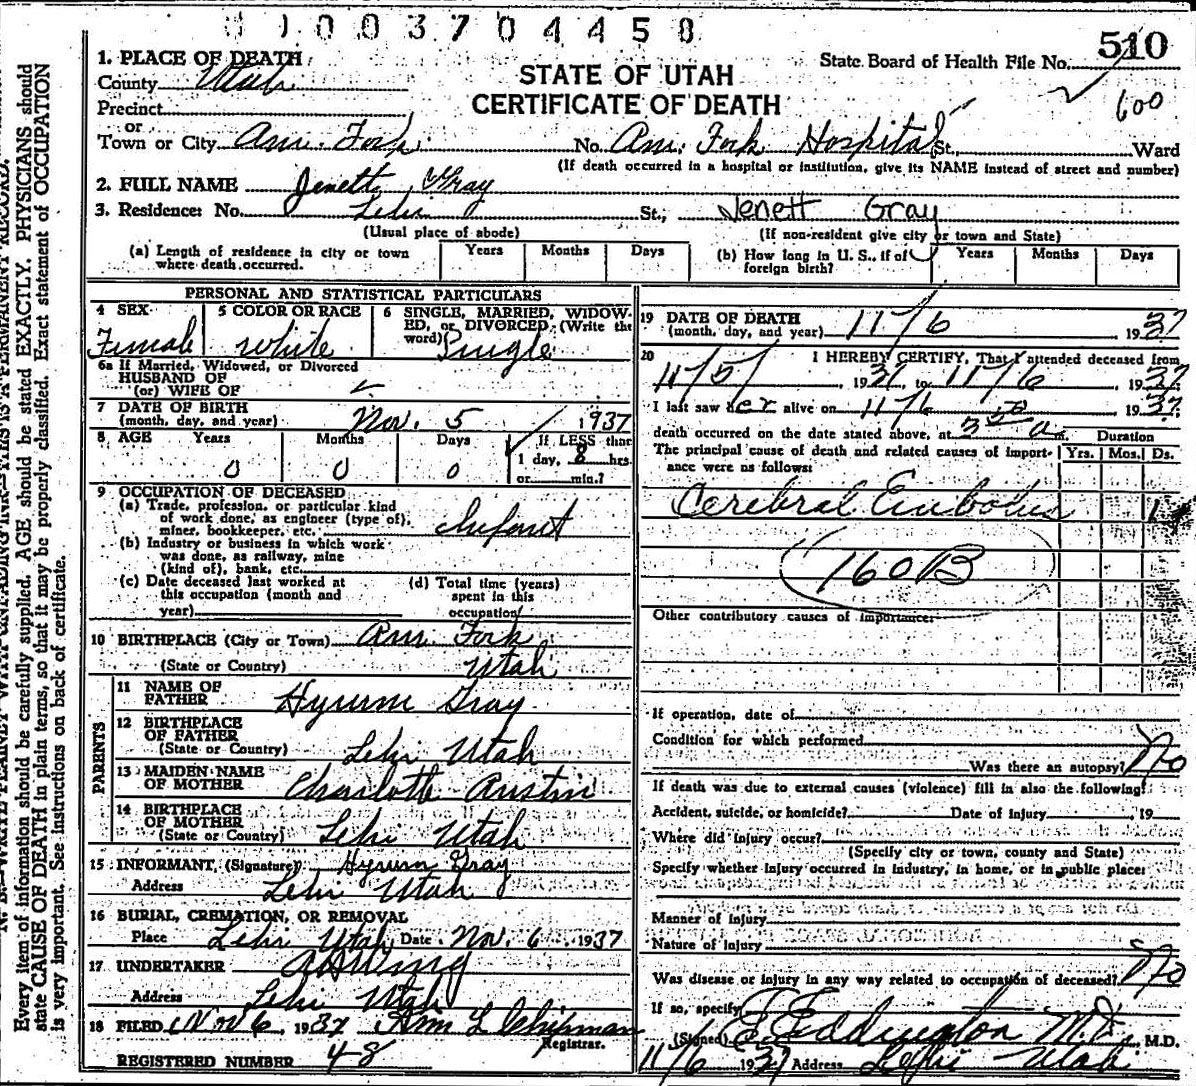 1003704450
510
600
State Board of Health File No.
STATE OF UTAH
CERTIFICATE OF DEATH
1. PLACE OF DEATH
County Utah
Precinct
or
Town or City Am. Fork No. Am. Fork Hospital St., Ward
(If death occurred in a hospital or institution, give its NAME instead of street and number)
2. FULL NAME Jenett Gray
3. Residence: No. Lehi St., Jenett Gray
(Usual place of abode) (If non-resident give city or town and State)
(a) Length of residence in city or town where death occurred. Years Months Days (b) How long in U. S., if of foreign birth? Years Months Days
PERSONAL AND STATISTICAL PARTICULARS
4 SEX Female
5 COLOR OR RACE White
6 SINGLE, MARRIED, WIDOWED, or DIVORCED (Write the word) Single
6a If Married, Widowed, or Divorced
HUSBAND OF
(or) WIFE OF
7 DATE OF BIRTH
(month, day, and year) Nov. 5 1937
8 AGE Years Months Days If LESS than
0 0 0 1 day, 8 hrs.
or min.?
9 OCCUPATION OF DECEASED
(a) Trade, profession, or particular kind
of work done, as engineer (type of),
miner, bookkeeper, etc. Infant
(b) Industry or business in which work
was done, as railway, mine
(kind of), bank, etc.
(c) Date deceased last worked at
this occupation (month and
year)
(d) Total time (years)
spent in this
occupation
10 BIRTHPLACE (City or Town) Am Fork
(State or Country) Utah
PARENTS
11 NAME OF
FATHER Hyrum Gray
12 BIRTHPLACE
OF FATHER
(State or Country) Lehi Utah
13 MAIDEN NAME
OF MOTHER Charlotte Austin
14 BIRTHPLACE
OF MOTHER
(State or Country) Lehi Utah
15 INFORMANT, (Signature) Hyrum Gray
Address Lehi Utah
16 BURIAL, CREMATION, OR REMOVAL
Place Lehi Utah Date Nov. 6 1937
17 UNDERTAKER A H Wing
Address Lehi Utah
18 FILED Nov 6, 1937 L Chipman
Registrar.
REGISTERED NUMBER 48
19 DATE OF DEATH
(month, day, and year) 11/6 1937
20 I HEREBY CERTIFY, That I attended deceased from
11/5/, 1937, to 11/6, 1937
I last saw her alive on 11/6 1937
death occurred on the date stated above, at 3 50 a m. Duration
The principal cause of death and related causes of importance were as follows: Yrs. Mos. Ds.
Cerebral Embolus 1
160B
Other contributory causes of importance:
If operation, date of
Condition for which performed
Was there an autopsy? No
If death was due to external causes (violence) fill in also the following:
Accident, suicide, or homicide? Date of injury , 19
Where did injury occur?
(Specify city or town, county and State)
Specify whether injury occurred in industry, in home, or in public place:
Manner of injury
Nature of injury
Was disease or injury in any way related to occupation of deceased? No
If so, specify
(Signed) E Eddington M.D., M.D.
11/6 1937 Address Lehi Utah
Every item of information should be carefully supplied. AGE should be stated EXACTLY. PHYSICIANS should
state CAUSE OF DEATH in plain terms, so that it may be properly classified. Exact statement of OCCUPATION
is very important. See instructions on back of certificate.